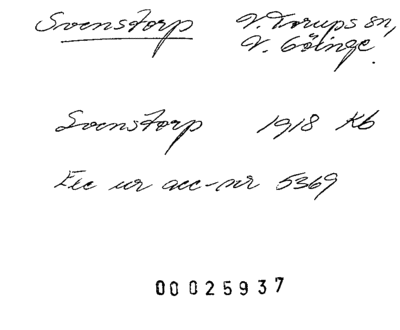 Svenstorp V. Torups sn,
V. Göinge.
Svenstorp 1918 Kb
Exc ur acc-nr 5369
00025937